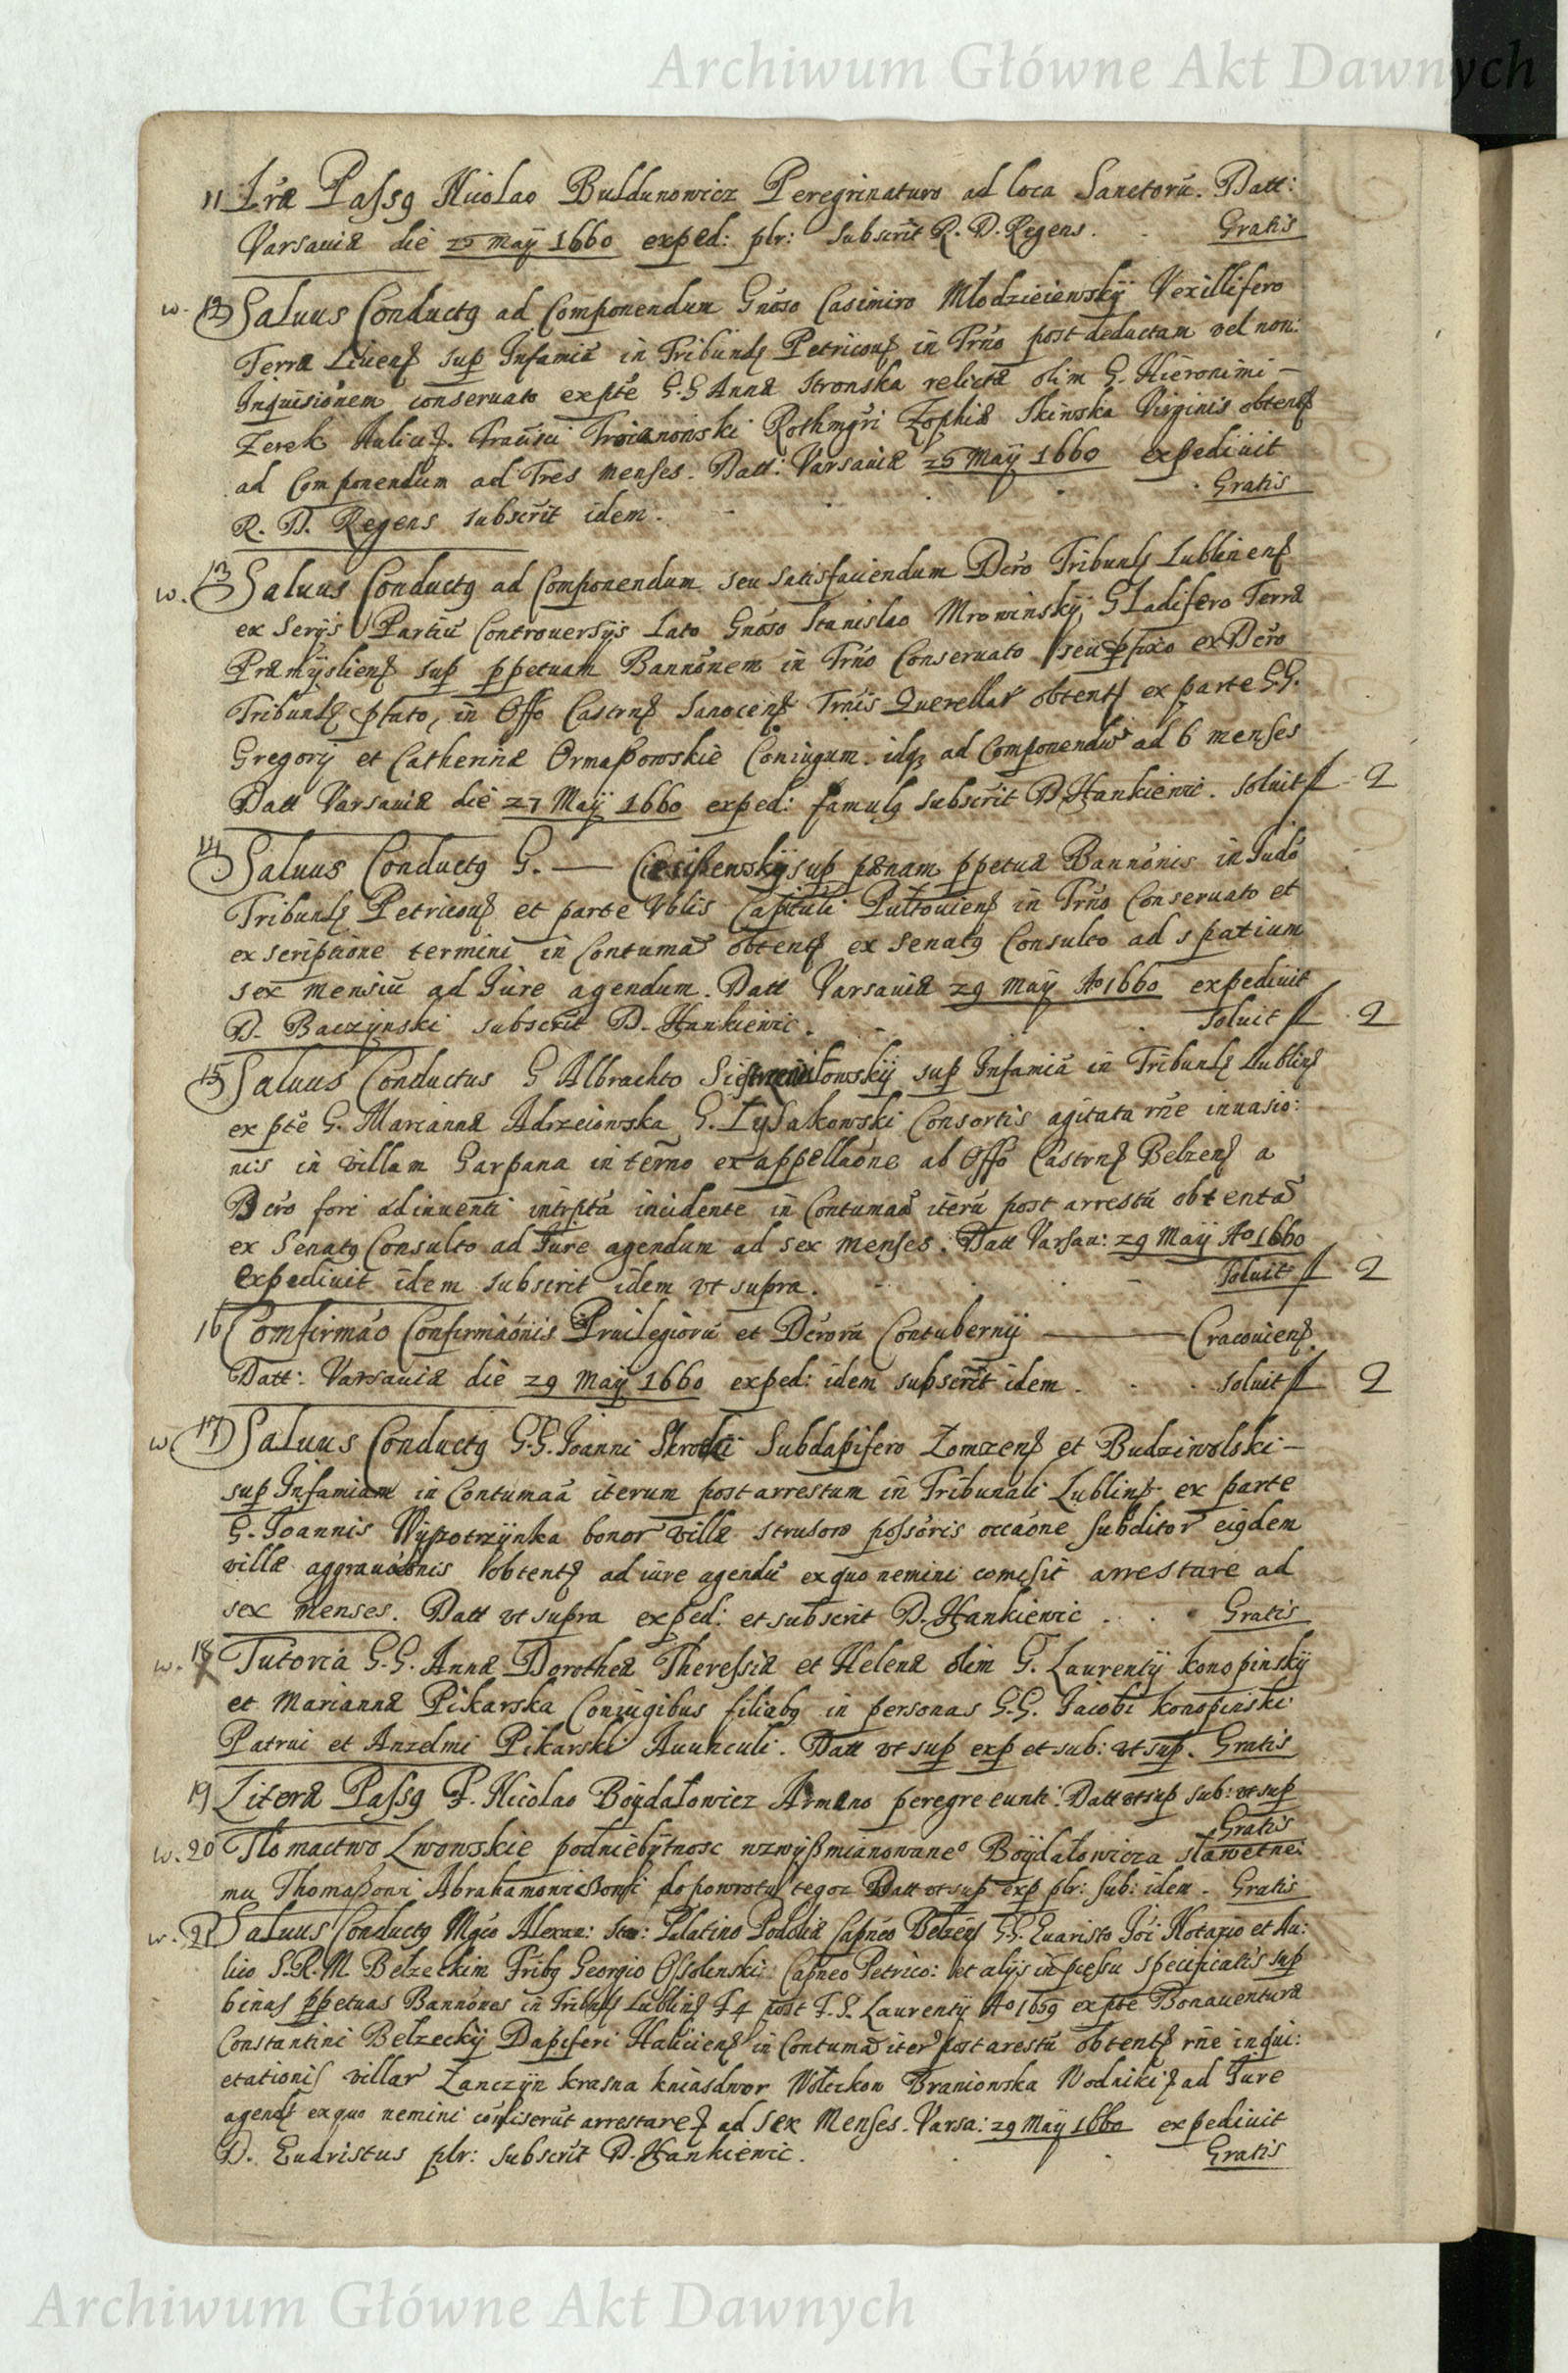 Archiwum Główne Akt Dawnych
11 Lræ Passq Nicolao Buldunowicz Peregrinaturo ad loca Sanctorũ. Datt:
Varsaviæ die 25 Maÿ 1660 exped: plr: subscrit R. D. Regens. Gratis
w. 12 Saluus Conductq ad Componendum Gnoso Casimiro Młodzieiewskÿ Vexillifero
Terræ Livens sup Infamiã in Tribunls Petricous in Trno post deductam vel non:
Inquisionem conseruato expte G.G Annæ Stronska relictæ olim G. Hieronimi –
Zerek Troianowski Rothmgri Zophiæ Skinska Virginis obtens
ad Componendum ad Tres menses. Datt: Varsaviæ 25 Maÿ 1660 expediuit
R. D. Regens subscrit idem. Gratis
w. 13 Saluus Conductq ad Componendum seu satisfaciendum Dcro Tribunls Lublinens
ex Serÿs Partiũ Controuersÿs Lato Gnoso Stanislao Mrowinskÿ, Gladifero Terræ
Præmÿsliens sup ppetuam Bannonem in Trno Conseruato seu pfixo ex Dcro
Tribunls plato, in Offo Castrns Sanocens Trnis Querellar obtents ex parte GG.
Gregorÿ et Catherinæ Ormaßowskie Coniugum. idq ad Componendũ ad 6 menses
Datt Varsaviæ die 27 Maÿ 1660 exped: famulq subscrit D. Hankiewic. soluit fl - 2
14 Saluus Conductq G. — sup pænam ppetuæ Bannonis in Judo
Tribunls Petricous et parte Vblis Capituli Pultouiens in Trno Conseruato et
ex scriptione termini in Contumã obtents ex Senatq Consulto ad spatium
sex mensiũ ad Jure agendum. Datt Varsaviæ 29 Maÿ Ao 1660 expediuit
D. Baczÿnski subscrit D. Hankiewic. soluit fl 2
15 Saluus Conductus G Albrachto sup Infamiã in Tribunls Lublins
ex pte G. Mariannæ Adrzeiowska G. Łysakowski Consortis agitata rne inuasio:
nis in villam Garpana in termo ex appellaone ab Offo Castrns Belzens a
Dcro fori adinuenti intrpta incidente in Contumaã iterũ post arrestũ obtentã
ex Senatq Consulto ad Jure agendum ad sex menses. Datt Varsau: 29 Maÿ Ao 1660
expediuit idem subscrit idem vt supra. soluit fl 2
16 Comfirmao Confirmaonis Priuilegiorũ et Dcrorũ Contubernÿ ——— Cracouiens.
Datt: Varsaviæ die 29 Maÿ 1660 exped: idem subscrit idem. soluit fl 2
w 17 Saluus Conductq G.G. Joanni Subdapifero Zomzens et Budziwolski –
sup Infamiam in Contumaã iterum post arrestum in Tribunali Lublins ex parte
G. Joannis Wÿpotrzÿnka bonor villæ strusow possoris occaone subditor eiqdem
villæ aggrauaonis obtents ad iure agendũ ex quo nemini comisit arrestare ad
sex menses. Datt vt supra exped: et subscrit D. Hankiewic. Gratis
w. 18 Tutoria G.G. Annæ Dorotheæ Theressiæ et Helenæ olim G. Laurentÿ Konopinskÿ
et Mariannæ Pikarska Coniugibus filiabq in personas G.G. Jacobi Konopinski
Patrui et Anzelmi Pikarski Auunculi. Datt vt sup exp et sub: vt sup. Gratis
19 Literæ Passq F. Nicolao Boÿdałowicz Armeno peregre eunti. Datt vt sup sub: vt sup
Gratis
w. 20 Tłomactwo Lwowskie podniebÿtnosc wzwÿßmianowane° Boÿdałowicza sławetne:
mu Thomaßowi Abrahamowiczowi po powrotu tegoz Datt vt sup exp plr: sub: idem. Gratis
w. 21 Saluus Conductq Mgco Alexan: Palatino Podoliæ Capneo Belzens G.G. Euaristo Joi Notario et Au:
lico S.R.M Belzeckim Fribq Georgio Ossolinski Capneo Petrico: et alÿs in pcessu specificatis sup
binas ppetuas Bannones in Tribunls Lublins F 4 post F. S. Laurentÿ Ao 1659 expte Bonauenturæ
Constantini Belzeckÿ Dapiferi Haliciens in Contumã iter post arestũ obtents rne inqui:
etationis villar Zanczÿn krasna kniasdwor Wołczkow Braniowska Wodniki ad Jure
agends ex quo nemini comiserũt arrestare ad sex Menses. Varsa: 29 Maÿ 1660 expediuit
D. Euaristus plr: subscrit D. Hankiewic. Gratis
Archiwum Główne Akt Dawnych